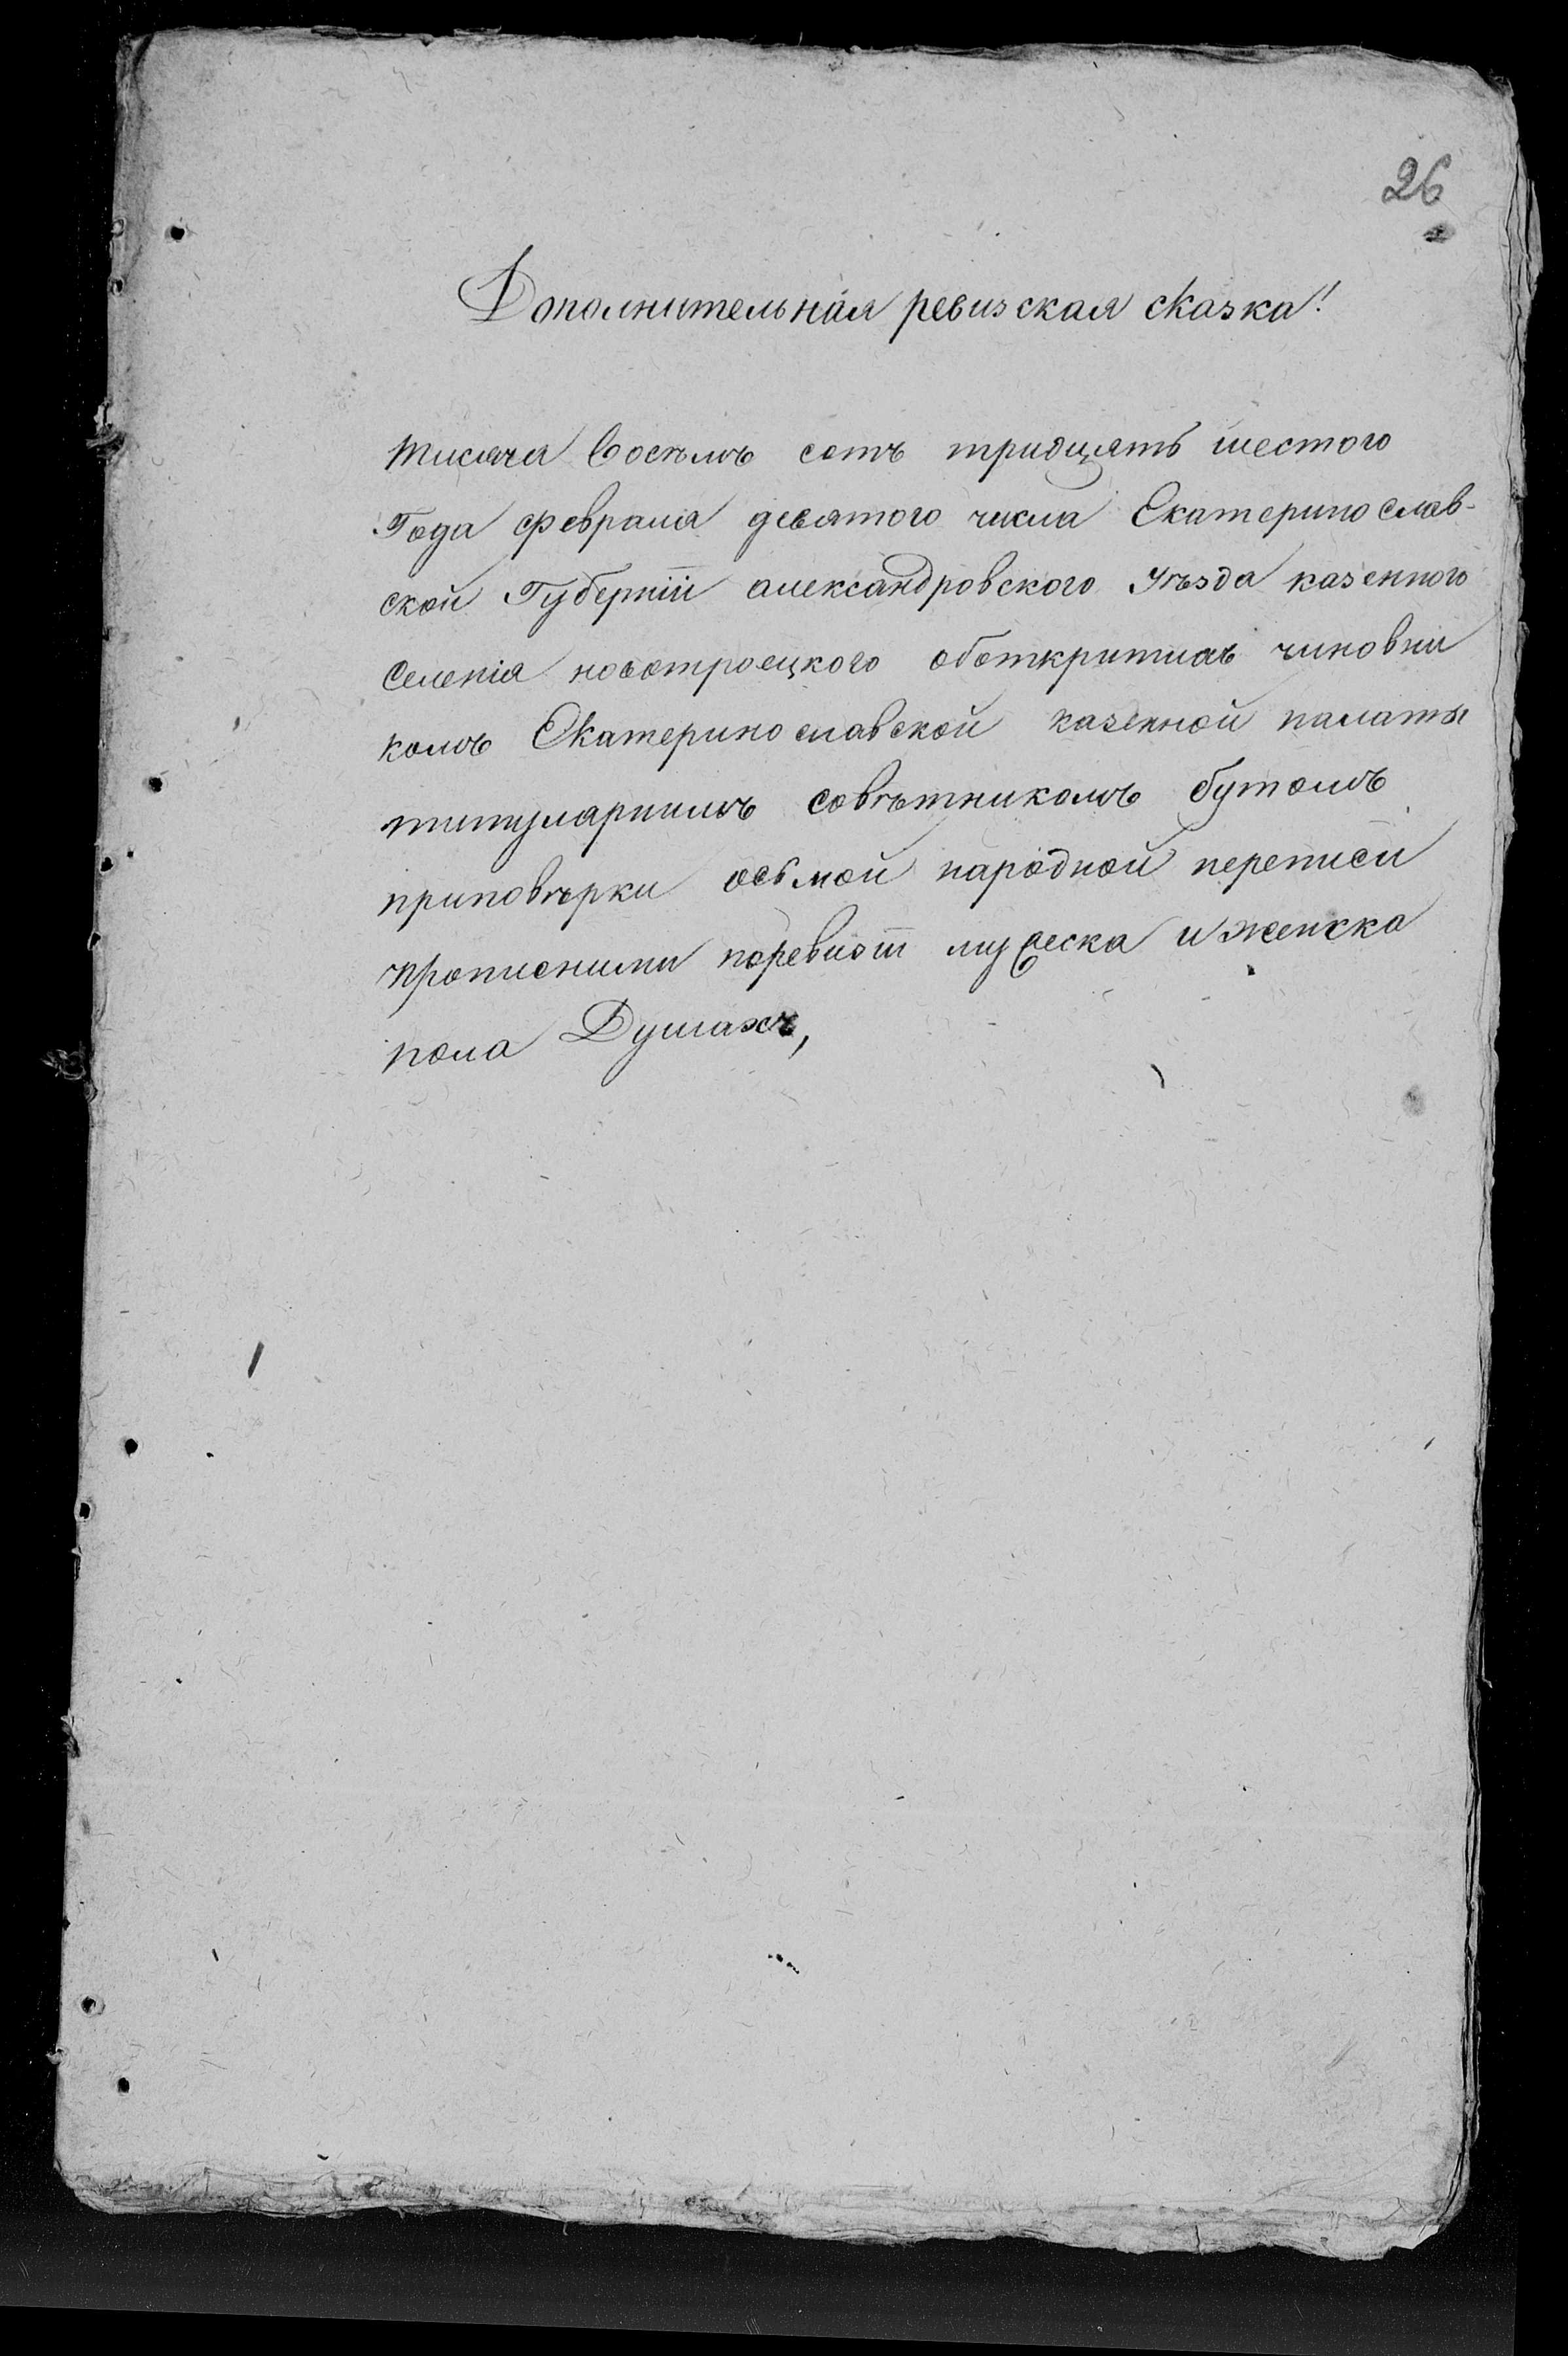 26
Дополнительная ревизская сказка!
тисяча восѣмъ сотъ тридцять шестого
Года февраля девятого числа Екатеринослав-
ской Губерніи александровского уѣзда казенного
Селенія новотроецкого оботкритихъ чиновни
комъ Екатеринославской казенной палаты
титулярнимъ совѣтникомъ бутомъ
приповѣрки осьмой народной переписи
прописними поревизіи мужеска и женска
пола Душахъ,